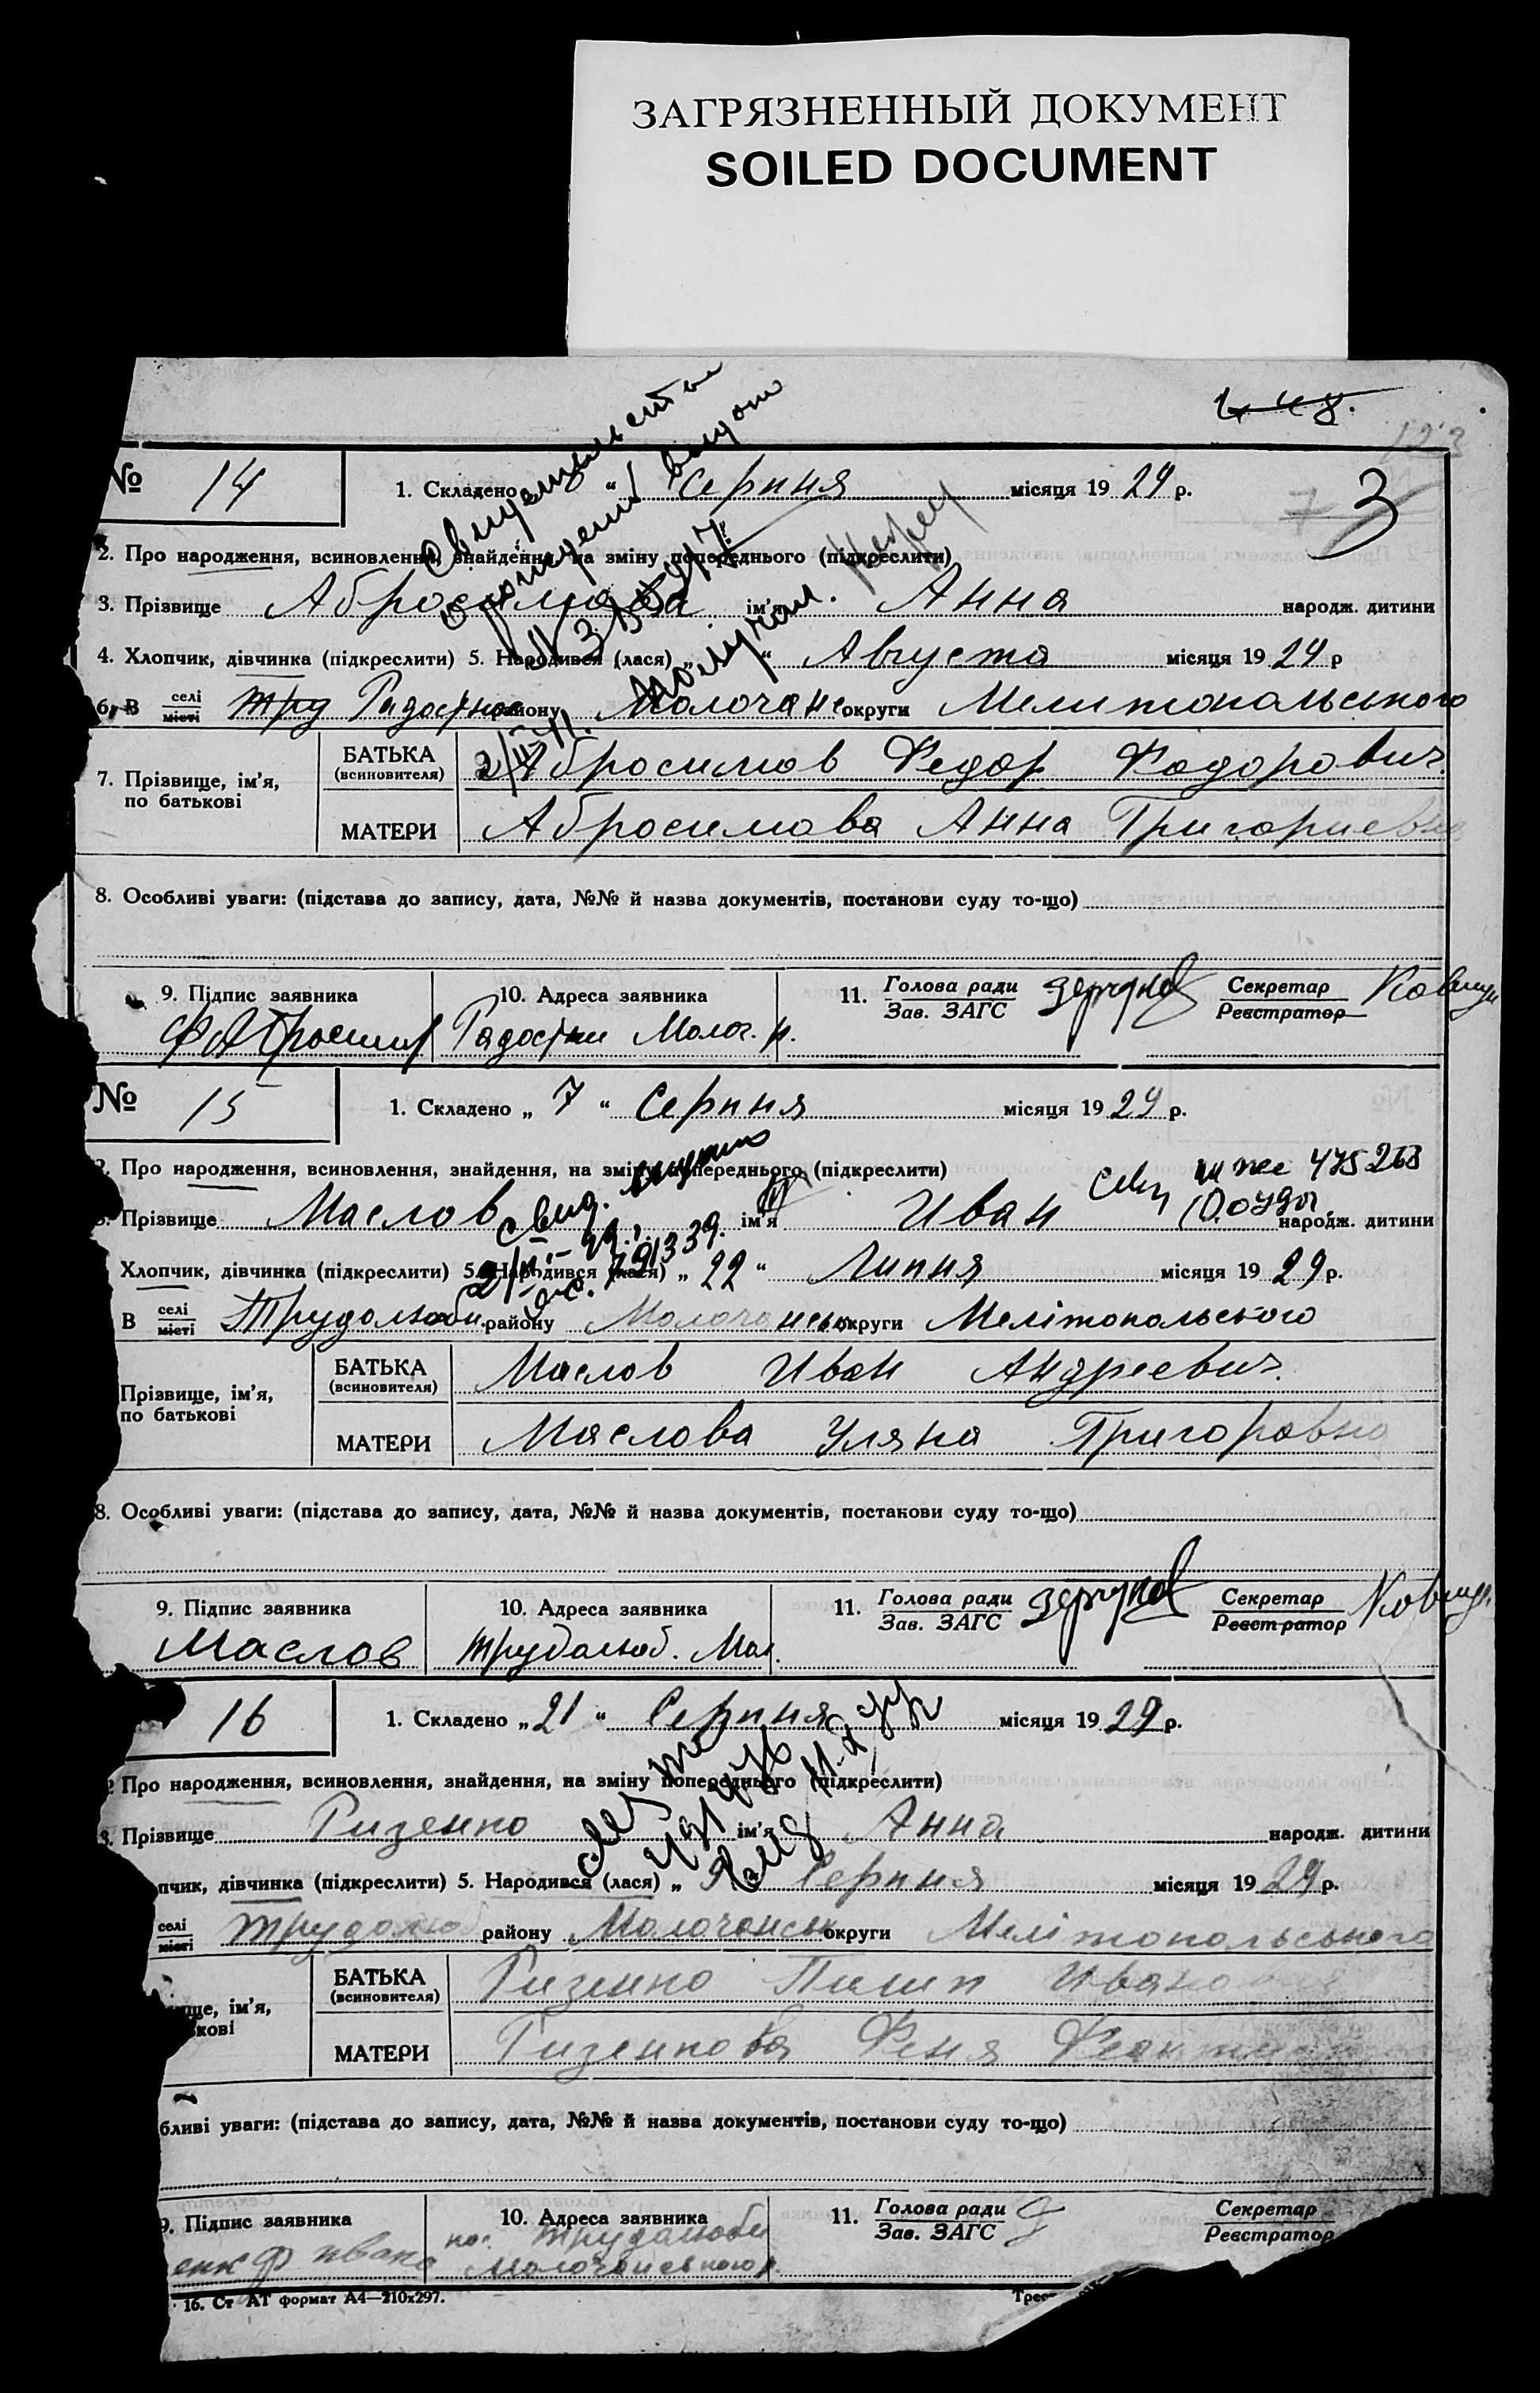 ЗАГРЯЗНЕННЫЙ ДОКУМЕНТ
SOILED DOCUMENT
3
№ 14
1. Складено „ “ Серпня місяця 1929 р.
2. Про народження, всиновлення, знайдення, на зміну попереднього (підкреслити)
3. Прізвище Абросимова ім'я Анна народж. дитини
4. Хлопчик, дівчинка (підкреслити) 5. Народився (лася) „ “ Августа місяця 1929 р
6. В селі місті Радостное району Молочанс округи Мелитопольського
7. Прізвище, ім'я, по батькові
БАТЬКА (всиновителя) Абросимов Федор Федорович
МАТЕРИ Абросимова Анна Григориевна
8. Особливі уваги: (підстава до запису, дата, №№ й назва документів, постанови суду то-що)
9. Підпис заявника
10. Адреса заявника Радостни Молоч. р.
11. Голова ради Зав. ЗАГС
Секретар Реєстратор
Свидетельство
о рождении выдано
№ 15
1. Складено „ 7 “ Серпня місяця 1929 р.
2. Про народження, всиновлення, знайдення, на зміну попереднього (підкреслити)
475268
3. Прізвище Маслов ім'я Иван народж. дитини
Хлопчик, дівчинка (підкреслити) 5. Народився (лася) „ 22 “ Липня місяця 1929 р.
В селі місті Трудолюби. району Молочанськ округи Мелітопольського
Прізвище, ім'я, по батькові
БАТЬКА (всиновителя) Маслов Иван Андреевич.
МАТЕРИ Маслова Уляна Григоровна
8. Особливі уваги: (підстава до запису, дата, №№ й назва документів, постанови суду то-що)
9. Підпис заявника Маслов
10. Адреса заявника Трудолюб. Мол.
11. Голова ради Зав. ЗАГС
Секретар Реєстратор
16
1. Складено „ 21 “ Серпня місяця 1929 р.
2 Про народження, всиновлення, знайдення, на зміну попереднього (підкреслити)
3. Прізвище Ризенко ім'я Анна народж. дитини
пчик, дівчинка (підкреслити) 5. Народився (лася) „ 9 “ Серпня місяця 1929 р.
селі місті Трудолюб району Молочанськ округи Мелітопольського
ще, ім'я, кові
БАТЬКА (всиновителя) Ризенко Пилип Ивано
МАТЕРИ Ризенкова Феня
бливі уваги: (підстава до запису, дата, №№ й назва документів, постанови суду то-що)
9. Підпис заявника
10. Адреса заявника Трудолюби Молочанського р.
11. Голова ради Зав. ЗАГС
Секретар Реєстратор
16. Ст АТ формат А4—210х297.
Трес